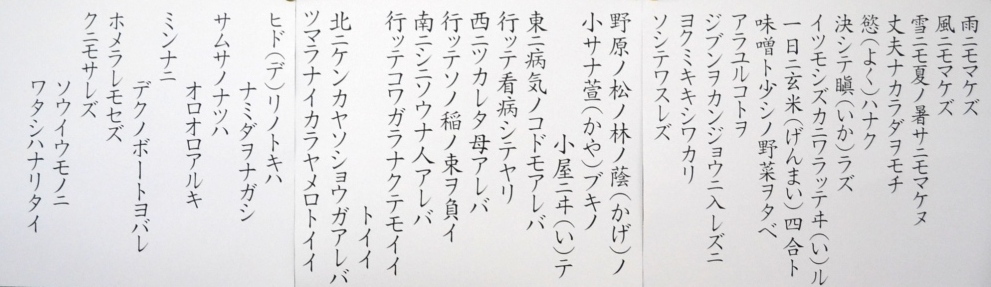 雨ニモマケズ
風ニモマケズ
雪ニモ夏ノ暑サニモマケヌ
丈夫ナカラダヲモチ
慾(よく)ハナク
決シテ瞋(いか)ラズ
イツモシズカニワラッテヰ(い)ル
一日ニ玄米(げんまい)四合ト
味噌ト少シノ野菜ヲタベ
アラユルコトヲ
ジブンヲカンジョウニ入レズニ
ヨクミキキシワカリ
ソシテワスレズ
野原ノ松ノ林ノ蔭(かげ)ノ
小サナ萱(かや)ブキノ
小屋ニヰ(い)テ
東ニ病気ノコドモアレバ
行ッテ看病シテヤリ
西ニツカレタ母アレバ
行ッテソノ稲ノ束ヲ負イ
南ニシニソウナ人アレバ
行ッテコワガラナクテモイイ
トイイ
北ニケンカヤソショウガアレバ
ツマラナイカラヤメロトイイ
ヒド(デ)リノトキハ
ナミダヲナガシ
サムサノナツハ
オロオロアルキ
ミンナニ
デクノボートヨバレ
ホメラレモセズ
クニモサレズ
ソウイウモノニ
ワタシハナリタイ